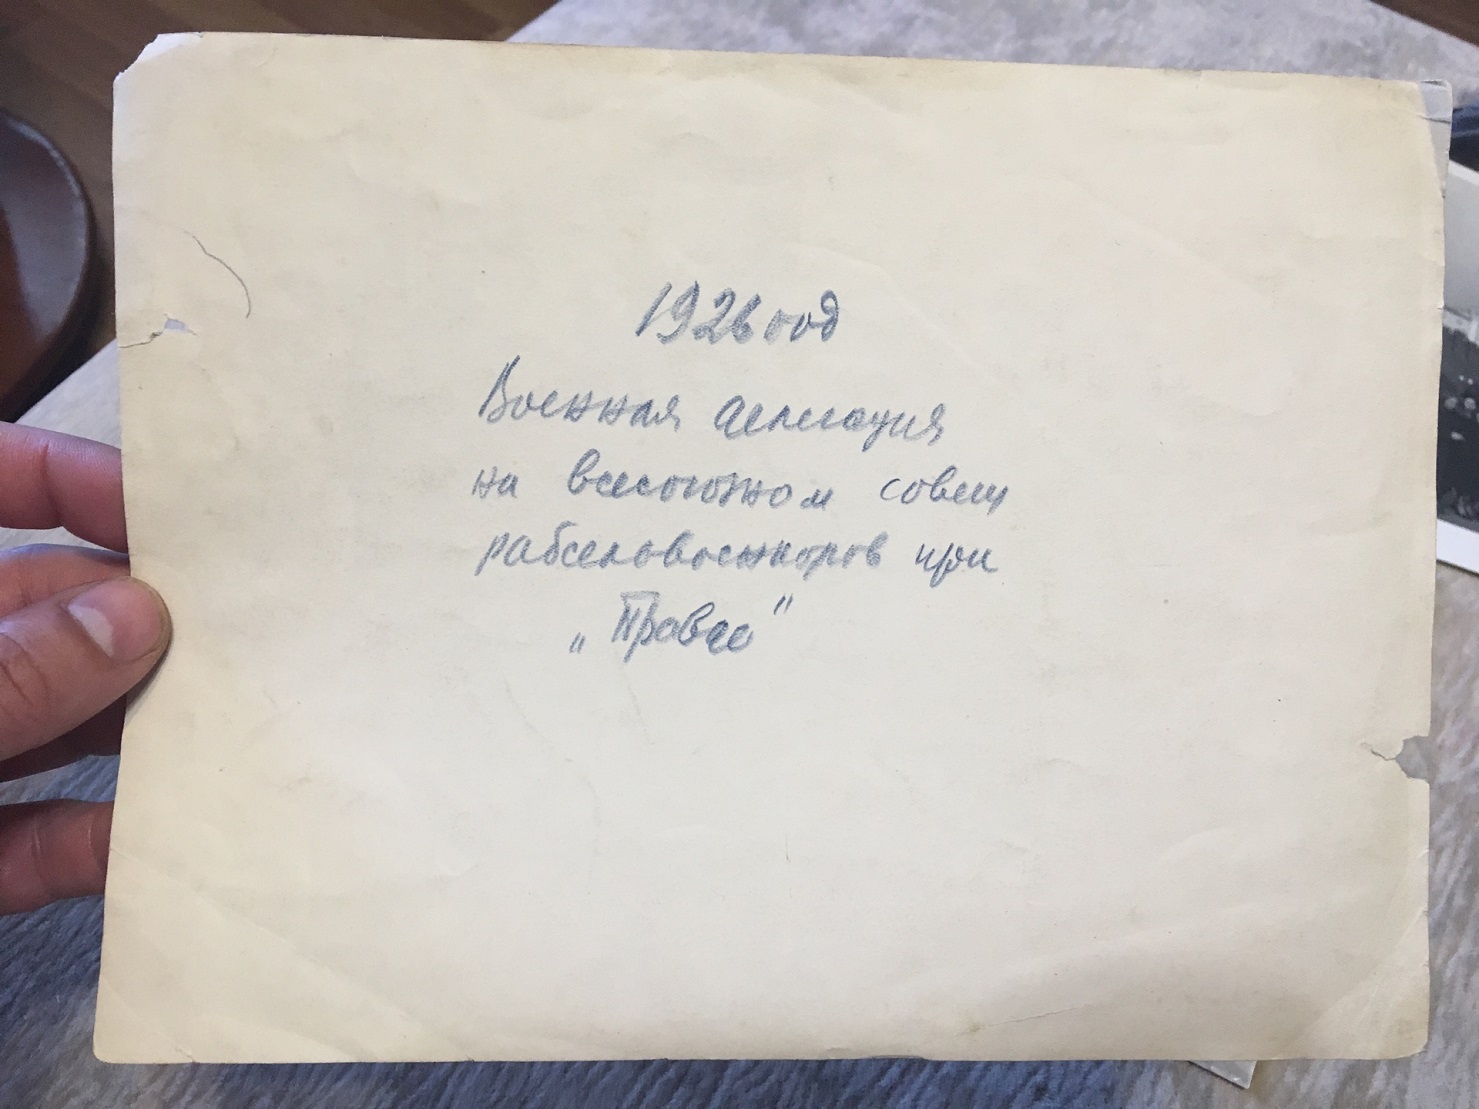 1926 год
Военная делегация
на всесоюзном совещ
рабселовоенкоров при
„Правде"